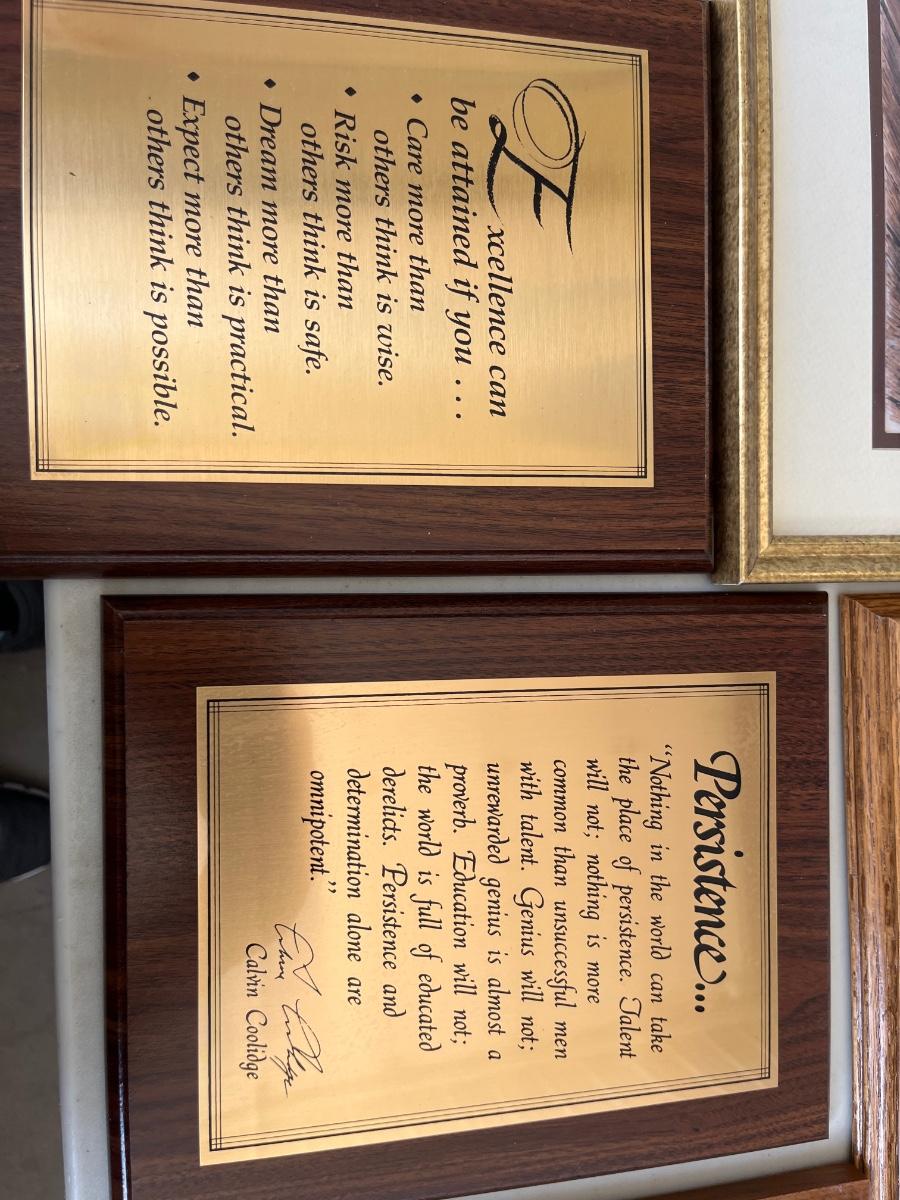 Excellence can
be attained if you . . .
• Care more than
others think is wise.
• Risk more than
others think is safe.
• Dream more than
others think is practical.
• Expect more than
others think is possible.
Persistence...
“Nothing in the world can take
the place of persistence. Talent
will not; nothing is more
common than unsuccessful men
with talent. Genius will not;
unrewarded genius is almost a
proverb. Education will not;
the world is full of educated
derelicts. Persistence and
determination alone are
omnipotent.”
Calvin Coolidge
Calvin Coolidge